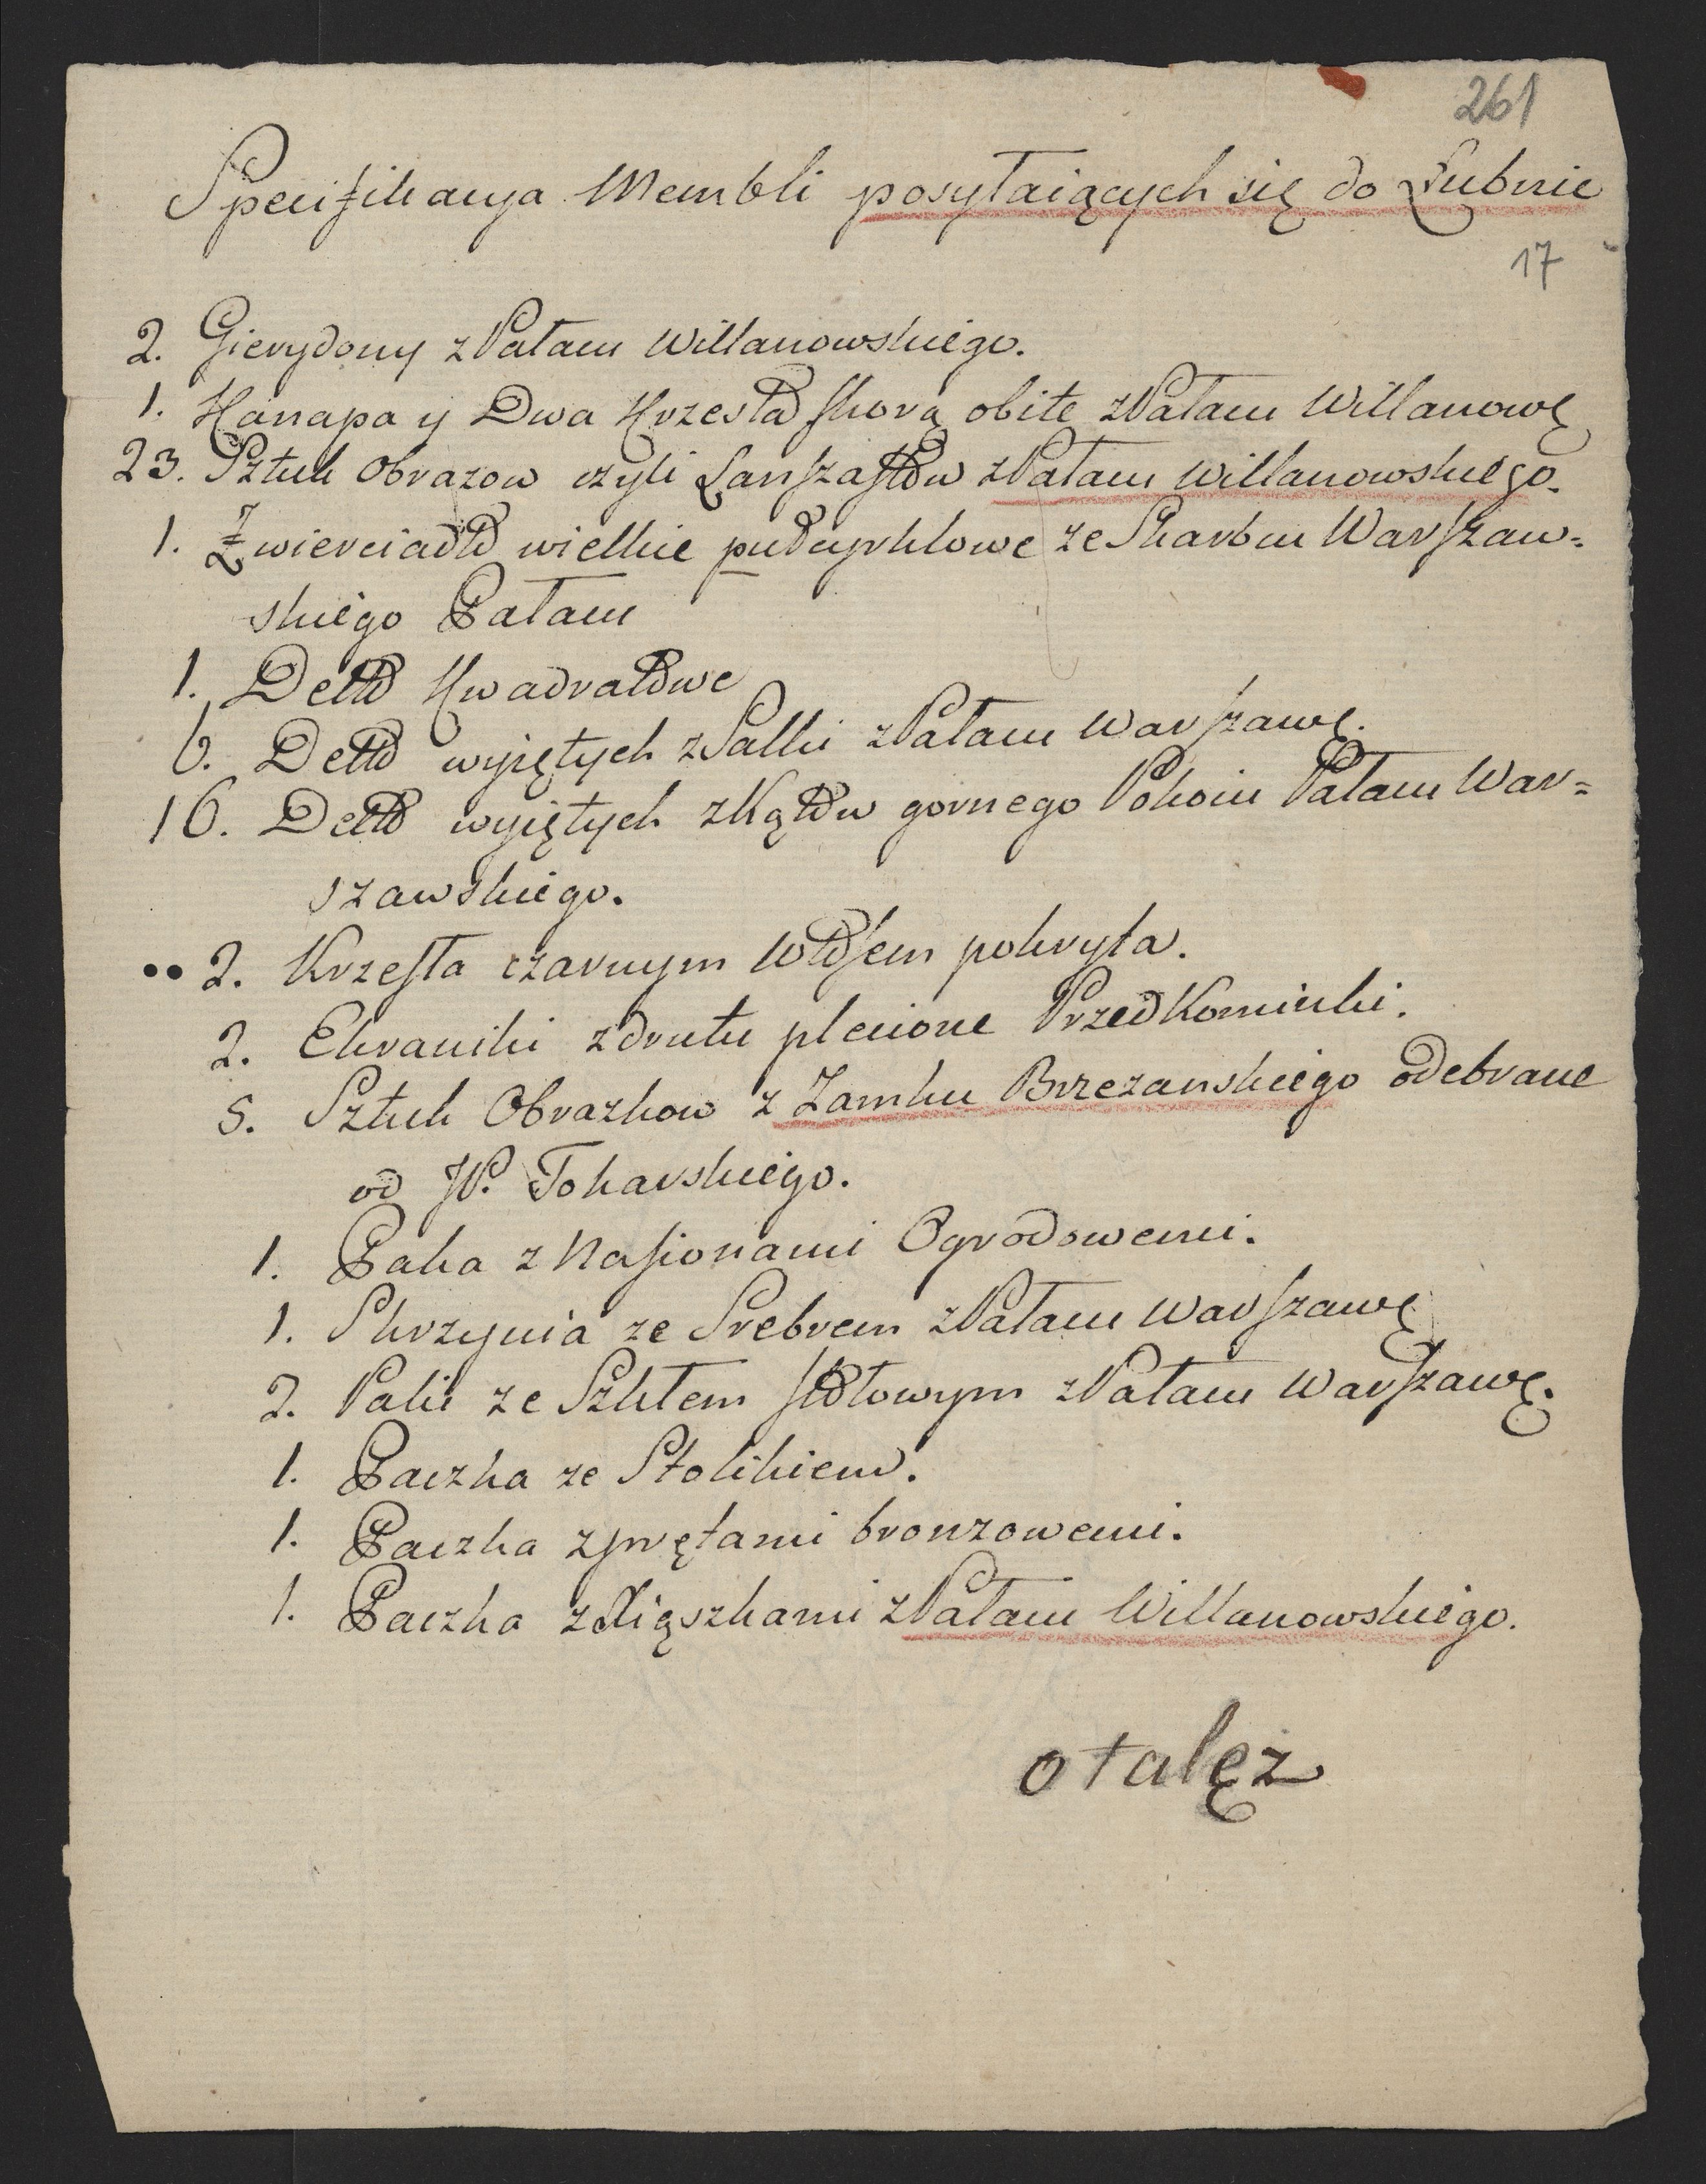 261
Specifikacya Membli posyłaiących się do Łubnic
17
2. Gierydony z Pałacu Willanowskiego.
1. Kanapa y Dwa Krzesła skorą obite z Pałacu Willanowę
23. Sztuk Obrazow czyli Lanszastow z Pałacu Willanowskiego.
1. Zwierciadło wielkie pułcyrklowe ze Skarbcu Warszaw=
skiego Pałacu
1. Detto Kwadratowe
6. Detto wyiętych z Salki z Pałacu Warszawę.
16. Detto wyiętych z Kątow gornego Pokoiu Pałacu War=
szawskiego.
2. Krzesła czarnym Włosem pokryta.
2. Ekraniki z drutu plecione Przed Kominki.
5. Sztuk Obrazkow z Zamku Brzezanskiego odebrane
od JP. Tokarskiego.
1. Paka z Nasionami Ogrodowemi.
1. Skrzynia ze Srebrem z Pałacu Warszawę
2. Paki ze Szkłem stołowym z Pałacu Warszawę.
1. Paczka ze Stolikiem.
1. Paczka z prętami bronzowemi.
1. Paczka z Xiąszkami z Pałacu Willanowskiego.
otalęz